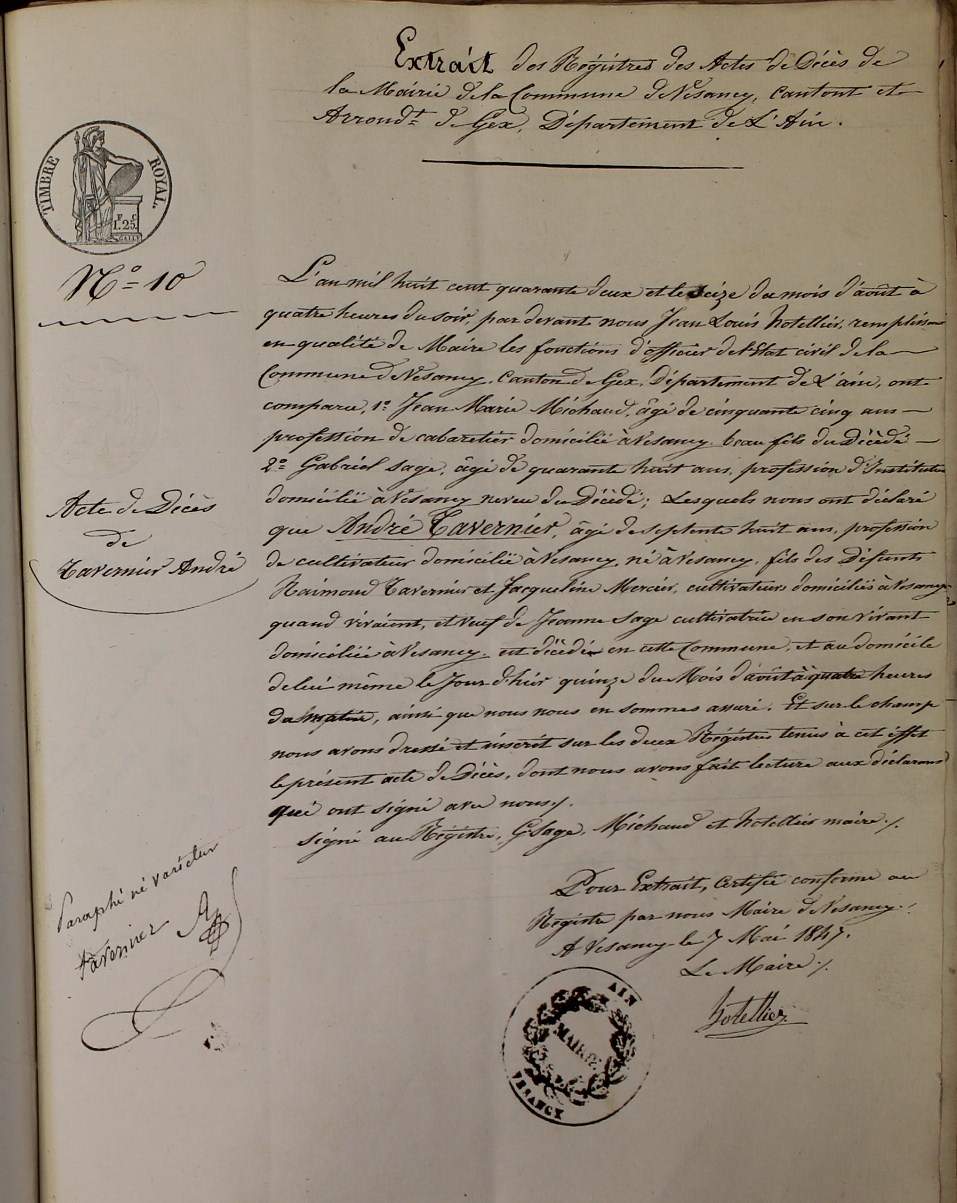 Extrait des Registres des Actes de Décès de
la Mairie de la Commune de Vesancy, Cantont et
Arrond.t de Gex, Département de L'Ain.
TIMBRE ROYAL.
F C
1.25.
N.o 10
L'an mil huit cent quarante deux et le seize du mois d'août à
quatre heures du soir, par devant nous Jean Louis hotellier, remplissant
en qualité de Maire les fonctions d'officier de l'Etat civil de la
Commune de Vesancy, Canton de Gex, Département de L'ain, ont
comparu, 1.o Jean Marie Michaud, âgé de cinquante cinq ans
profession de cabaretier domicilié à Vesancy, beau fils du Décédé
2.o Gabriel Sage, âgé de quarante huit ans, profession d'Instituteur
domicilié à Vesancy neveu du Décédé; Lesquels nous ont déclaré
que André Tavernier, âgé de septente huit ans, profession
de cultivateur domicilié à Vesancy, né à Vesancy, fils des Défunts
Raimond Tavernier et Jacqueline Mercier, cultivateurs domiciliés à Vesancy
quand vivaient, et veuf de Jeanne Sage cultivatrice en son vivant
domiciliée à Vesancy, est décédé en cette Commune, et au domicile
de lui même le Jour d'hier quinze du Mois d'août à quatre heures
du matin, ainsi que nous nous en sommes assuré. Et sur le champ
nous avons dressé et inscrit sur les deux Registres tenus à cet effet
le présent acte de Décès, dont nous avons fait lecture aux déclarans
qui ont signé avec nous
signé au Registre, G. Sage, Michaud et hotellier maire
Acte de Décès
de
Tavernier André
Paraphé né varietur
Tavernier
Pour Extrait, Certifié conforme au
Registre par nous Maire de Vesancy.
A Vesancy le 7 Mai 1847.
Le Maire
hotellier
AIN
MAIRIE
VESANCY